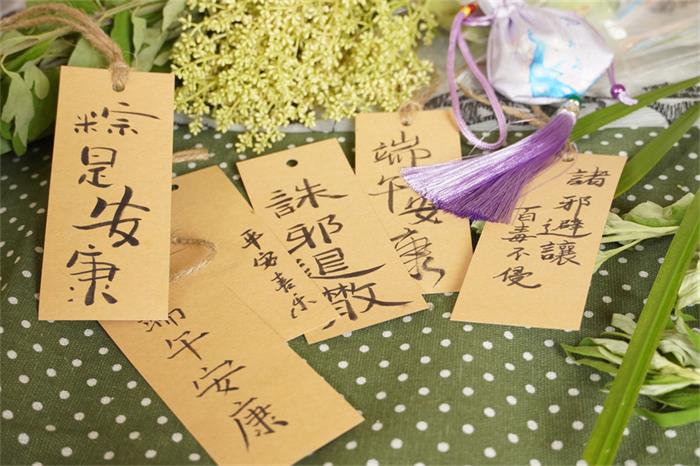 粽是安康
端午安康
平安喜乐
誅邪退散
端午安康
諸邪避讓
百毒不侵